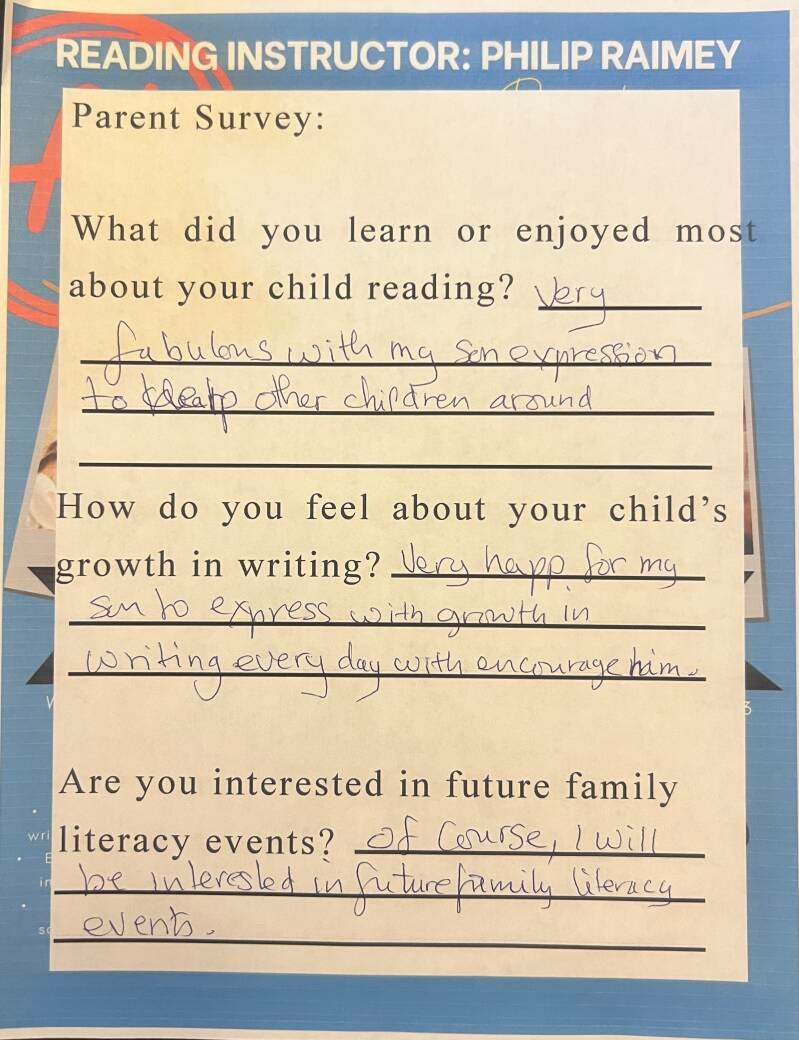 READING INSTRUCTOR: PHILIP RAIMEY
Parent Survey:
What did you learn or enjoyed most
about your child reading? Very
fabulous with my son expression
to other children around
How do you feel about your child's
growth in writing? Very happ for my
son to express with growth in
writing every day with encourage him.
Are you interested in future family
literacy events? Of Course, I will
be interested in future family literacy
events.